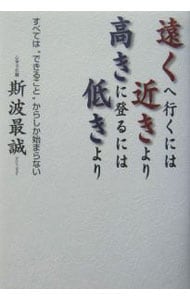 遠くへ行くには
近きより
高きに登るには
低きより
すべては“できること”からしか始まらない
斯波最誠